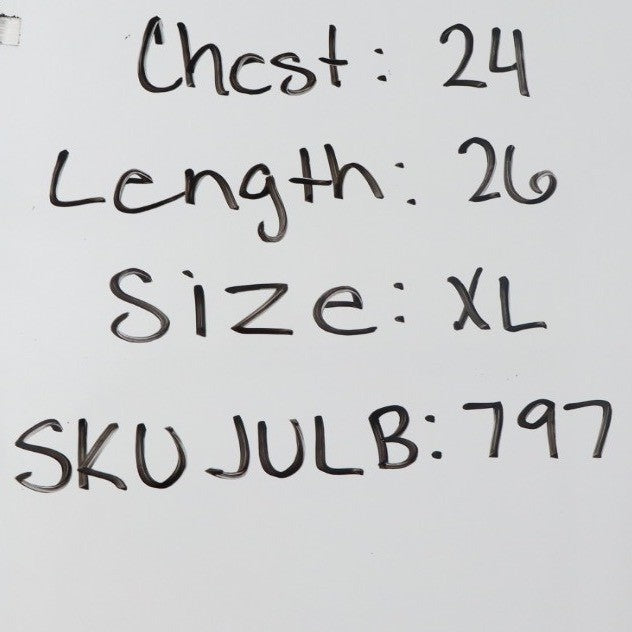 Chest: 24
Length: 26
Size: XL
SKU JULB: 797